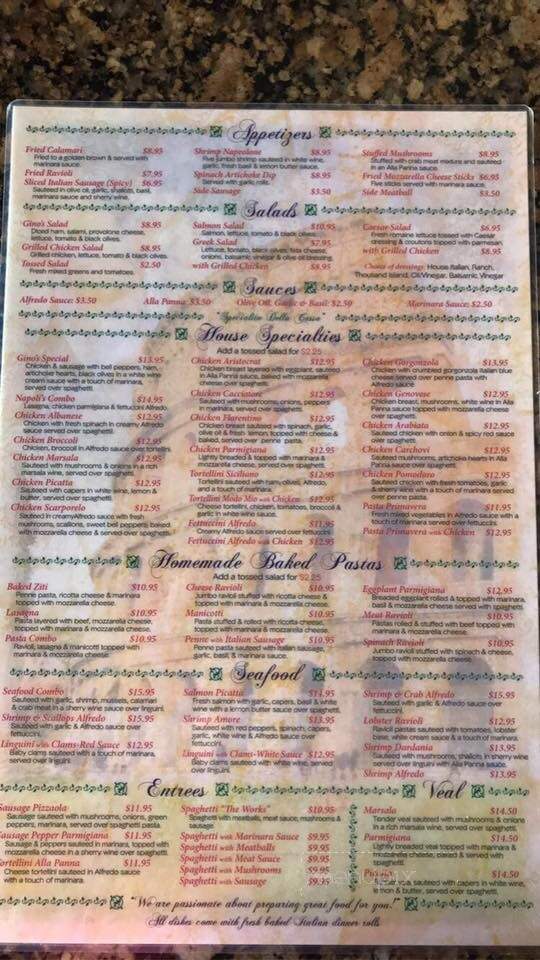 Appetizers
Fried Calamari $8.95
Fried to a golden brown & served with
marinara sauce.
Fried Ravioli $7.95
Sliced Italian Sausage (Spicy) $6.95
Sauteed in olive oil, garlic, shallots, basil,
marinara sauce and sherry wine.
Shrimp Napoleone $8.95
Five jumbo shrimp sauteed in white wine,
garlic, fresh basil & lemon butter sauce.
Spinach Artichoke Dip $8.95
Served with garlic rolls.
Side Sausage $3.50
Stuffed Mushrooms $8.95
Stuffed with crab meat mixture and sauteed
in an Alla Panna sauce.
Fried Mozzarella Cheese Sticks $6.95
Five sticks served with marinara sauce.
Side Meatball $3.50
Salads
Gino's Salad $8.95
Diced ham, salami, provolone cheese,
lettuce, tomato & black olives.
Grilled Chicken Salad $8.95
Grilled chicken, lettuce, tomato & black olives.
Tossed Salad $2.50
Fresh mixed greens and tomatoes.
Salmon Salad $10.95
Salmon, lettuce, tomato & black olives.
Greek Salad $7.95
Lettuce, tomato, black olives, feta cheese,
onions, balsamic vinegar & olive oil dressing.
with Grilled Chicken $8.95
Caesar Salad $6.95
Fresh romaine lettuce tossed with Caesar
dressing & coutons topped with parmesan.
with Grilled Chicken $8.95
Choice of dressings: House Italian, Ranch,
Thousand Island, Oil/Vinegar, Balsamic Vinegar
Sauces
Alfredo Sauce: $3.50 Alla Panna: $3.50 Olive Oil, Garlic & Basil: $2.50 Marinara Sauce: $2.50
"Specialite Della Casa"
House Specialties
Add a tossed salad for $2.25
Gino's Special $13.95
Chicken & sausage with bell peppers, ham,
artichoke hearts, black olives in a white wine
cream sauce with a touch of marinara,
served over spaghetti.
Napoli's Combo $14.95
Lasagna, chicken parmigiana & fettuccini Alfredo.
Chicken Albanese $12.95
Chicken with fresh spinach in creamy Alfredo
sauce served over spaghetti.
Chicken Broccoli $12.95
Chicken, broccoli in Alfredo sauce over tortellini.
Chicken Marsala $12.95
Sauteed with mushrooms & onions in a rich
marsala wine, served over spaghetti.
Chicken Picatta $12.95
Sauteed with capers in white wine, lemon &
butter, served over spaghetti.
Chicken Scarporelo $12.95
Sauteed in creamyAlfredo sauce with fresh
mushrooms, scallions, sweet bell peppers, baked
with mozzarella cheese & served over spaghetti.
Chicken Aristocrat $12.95
Chicken breast layered with eggplant, sauteed
in Alla Panna sauce, baked with mozzarella
cheese over spaghetti.
Chicken Cacciatore $12.95
Sauteed with mushrooms, onions, peppers
in marinara, served over spaghetti.
Chicken Fiorentino $12.95
Chicken breast sauteed with spinach, garlic,
olive oil & fresh lemon, topped with cheese &
baked, served over penne pasta.
Chicken Parmigiana $12.95
Lightly breaded & topped with marinara &
mozzarella cheese, served over spaghetti.
Tortellini Siciliano $12.95
Tortellini sauteed with ham, olives, Alfredo,
and a touch of marinara.
Tortellini Modo Mio with Chicken $12.95
Cheese tortellini, chicken, tomatoes, broccoli &
garlic in white wine sauce.
Fettuccini Alfredo $11.95
Creamy Alfredo sauce served over fettuccini.
Fettuccini Alfredo with Chicken $12.95
Chicken Gorgonzola $13.95
Chicken with crumbled gorgonzola italian blue
cheese served over penne pasta with
Alfredo sauce
Chicken Genovese $12.95
Chicken breast, mushrooms, white wine in Alla
Panna sauce topped with mozzarella cheese
over spaghetti.
Chicken Arabiata $12.95
Sauteed chicken with onion & spicy red sauce
over spaghetti.
Chicken Carchovi $12.95
Sauteed mushrooms, artichoke hearts in Alla
Panna sauce over spaghetti.
Chicken Pomodoro $12.95
Sauteed chicken with fresh tomatoes, garlic
& sherry wine with a touch of marinara served
over penne pasta.
Pasta Primavera $11.95
Fresh mixed vegetables in Alfredo sauce with a
touch of marinara served over fettuccini.
Pasta Primavera with Chicken $12.95
Homemade Baked Pastas
Add a tossed salad for $2.25
Baked Ziti $10.95
Penne pasta, ricotta cheese & marinara
topped with mozzarella cheese.
Lasagna $10.95
Pasta layered with beef, mozzarella cheese
topped with marinara & mozzarella cheese.
Pasta Combo $10.95
Ravioli, lasagna & manicotti topped with
marinara & mozzarella cheese.
Cheese Ravioli $10.95
Jumbo ravioli stuffed with ricotta cheese &
topped with marinara & mozzarella cheese.
Manicotti $10.95
Pasta stuffed & rolled with ricotta cheese,
topped with marinara & mozzarella cheese.
Penne with Italian Sausage $10.95
Penne pasta sauteed with italian sausage,
garlic, basil, & marinara.
Eggplant Parmigiana $12.95
Breaded eggplant rolled & topped with marinara,
basil & mozzarella cheese served with spaghetti.
Meat Ravioli $10.95
Pastas rolled & stuffed with beef topped with
marinara & mozzarella cheese.
Spinach Ravioli $10.95
Jumbo ravioli stuffed with spinach & cheese,
topped with mozzarella cheese.
Seafood
Seafood Combo $15.95
Sauteed with garlic, shrimp, mussels, calamari
& crab meat in a sherry wine sauce over linguini.
Shrimp & Scallops Alfredo $15.95
Sauteed with garlic & Alfredo sauce over
fettuccini.
Linguini with Clams-Red Sauce $12.95
Baby clams sauteed with a touch of marinara,
served over linguini.
Salmon Picatta $14.95
Fresh salmon with garlic, capers, basil & white
wine with a lemon butter sauce over spaghetti.
Shrimp Amore $13.95
Sauteed with red peppers, spinach, capers,
garlic, white wine & Alfredo sauce over
fettuccini.
Linguini with Clams-White Sauce $12.95
Baby clams sauteed with white wine, served
over linguini.
Shrimp & Crab Alfredo $15.95
Sauteed with garlic & Alfredo sauce over
fettuccini.
Lobster Ravioli $12.95
Ravioli pastas sauteed with tomatoes, lobster
base, white cream sauce & a touch of marinara.
Shrimp Dardania $13.95
Sauteed with mushrooms, shallots, in sherry wine
served over linguini with Alla Panna sauce.
Shrimp Alfredo $13.95
Entrees
Sausage Pizzaola $11.95
Sausage sauteed with mushrooms, onions, green
peppers, marinara, served over spaghetti pasta.
Sausage Pepper Parmigiana $11.95
Sausage & peppers sauteed in marinara, topped with
mozzarella cheese in a sherry wine over spaghetti.
Tortellini Alla Panna $11.95
Cheese tortellini sauteed in Alfredo sauce
with a touch of marinara.
Spaghetti "The Works" $10.95
Spaghetti with meatballs, meat sauce, mushrooms &
sausage.
Spaghetti with Marinara Sauce $9.95
Spaghetti with Meatballs $9.95
Spaghetti with Meat Sauce $9.95
Spaghetti with Mushrooms $9.95
Spaghetti with Sausage $9.95
Veal
Marsala $14.50
Tender veal sauteed with mushrooms & onions
in a rich marsala wine, served over spaghetti.
Parmigiana $14.50
Lightly breaded veal topped with marinara &
mozzarella cheese, baked & served with
spaghetti.
$14.50
veal, sauteed with capers in white wine,
lemon & butter, served over spaghetti.
"We are passionate about preparing great food for you!"
All dishes come with fresh baked Italian dinner rolls